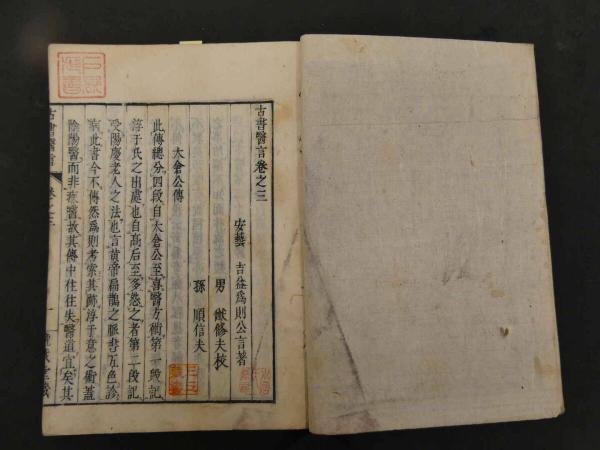 古書醫言卷之三
安藝 吉益爲則公言著
男 猷修夫校
孫 順信夫
太倉公傳
此傳總分四段自太倉公至喜醫方術第一段記
淳于氏之出處也自高后至多怨之者第二段記
受陽慶老人之法也言黃帝扁鵲之脈書五色診
病此書今不傳然爲則考索其跡淳于意之術蓋
陰陽醫而非疾醫故其傳中往往失醫道宜矣其
古書醫言 卷之三